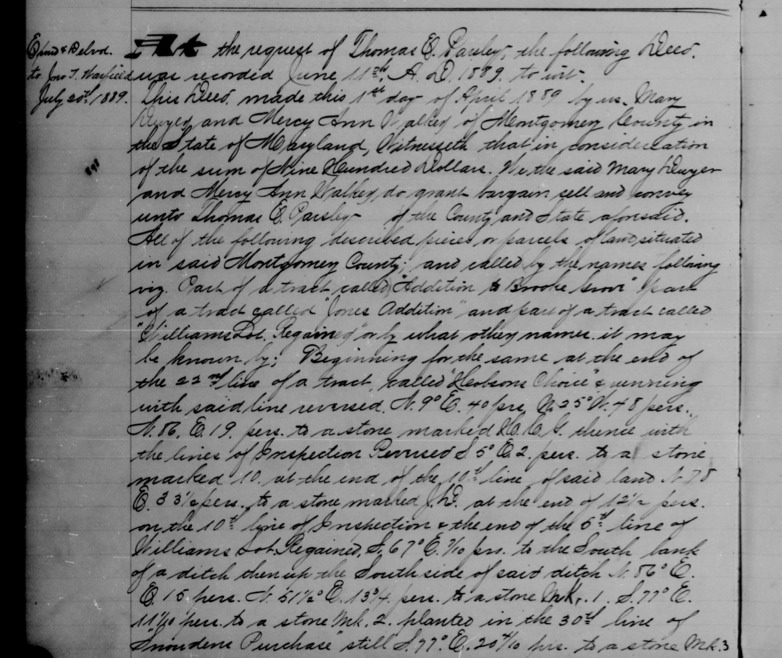 Exmd & Delvd.
to Jno T. Warfield
July 20th 1889.
At the request of Thomas E. Parsley, the following Deed.
was recorded June 11th, A. D. 1889. to wit.
This Deed, made this 1st day of April 1889 by us. Mary
Dwyer and Mercy Ann Walker of Montgomery County in
the State of Maryland, Witnesseth that in consideration
of the sum of Nine Hundred Dollars. We the said Mary Dwyer
and Mercy Ann Walker, do grant bargain sell and convey
unto Thomas E. Parsley of the County and State aforesaid.
All of the following described pieces or parcels of land, situated
in said Montgomery County; and called by the names following
viz. Part of a tract called "Addition to Brooke Grove" Part
of a tract called "Jones Addition" and part of a tract called
"Williams Lot Regained" or by what other names it may
be known by; Beginning for the same at the end of
the 22nd line of a tract, called "Hobsons Choice" & running
with said line reversed, N. 9° E. 40 prs, N. 25° W. 48 pers.,
N. 86, E. 19. pers. to a stone marked thence with
the lines of Inspection Revised S 5° E 2. pers. to a stone
marked 10. at the end of the 10th line, of said land N 78
E. 33 1/2 pers. to a stone marked at the end of 12 1/2 prs.
on the 10th line of Inspection & the end of the 5th line of
Williams Lot Regained, S. 67° E. 7/10 prs. to the South bank
of a ditch then up the South side of said ditch N. 86° E.
E. 15 pers. N. 51 1/2° E. 13 3/4 pers. to a stone Mk. 1. S. 77° E.
11 1/10 pers. to a stone Mk. 2 planted in the 30th line of
"Snowdens Purchase" still S. 77°. E. 20 4/10 prs. to a stone Mk. 3